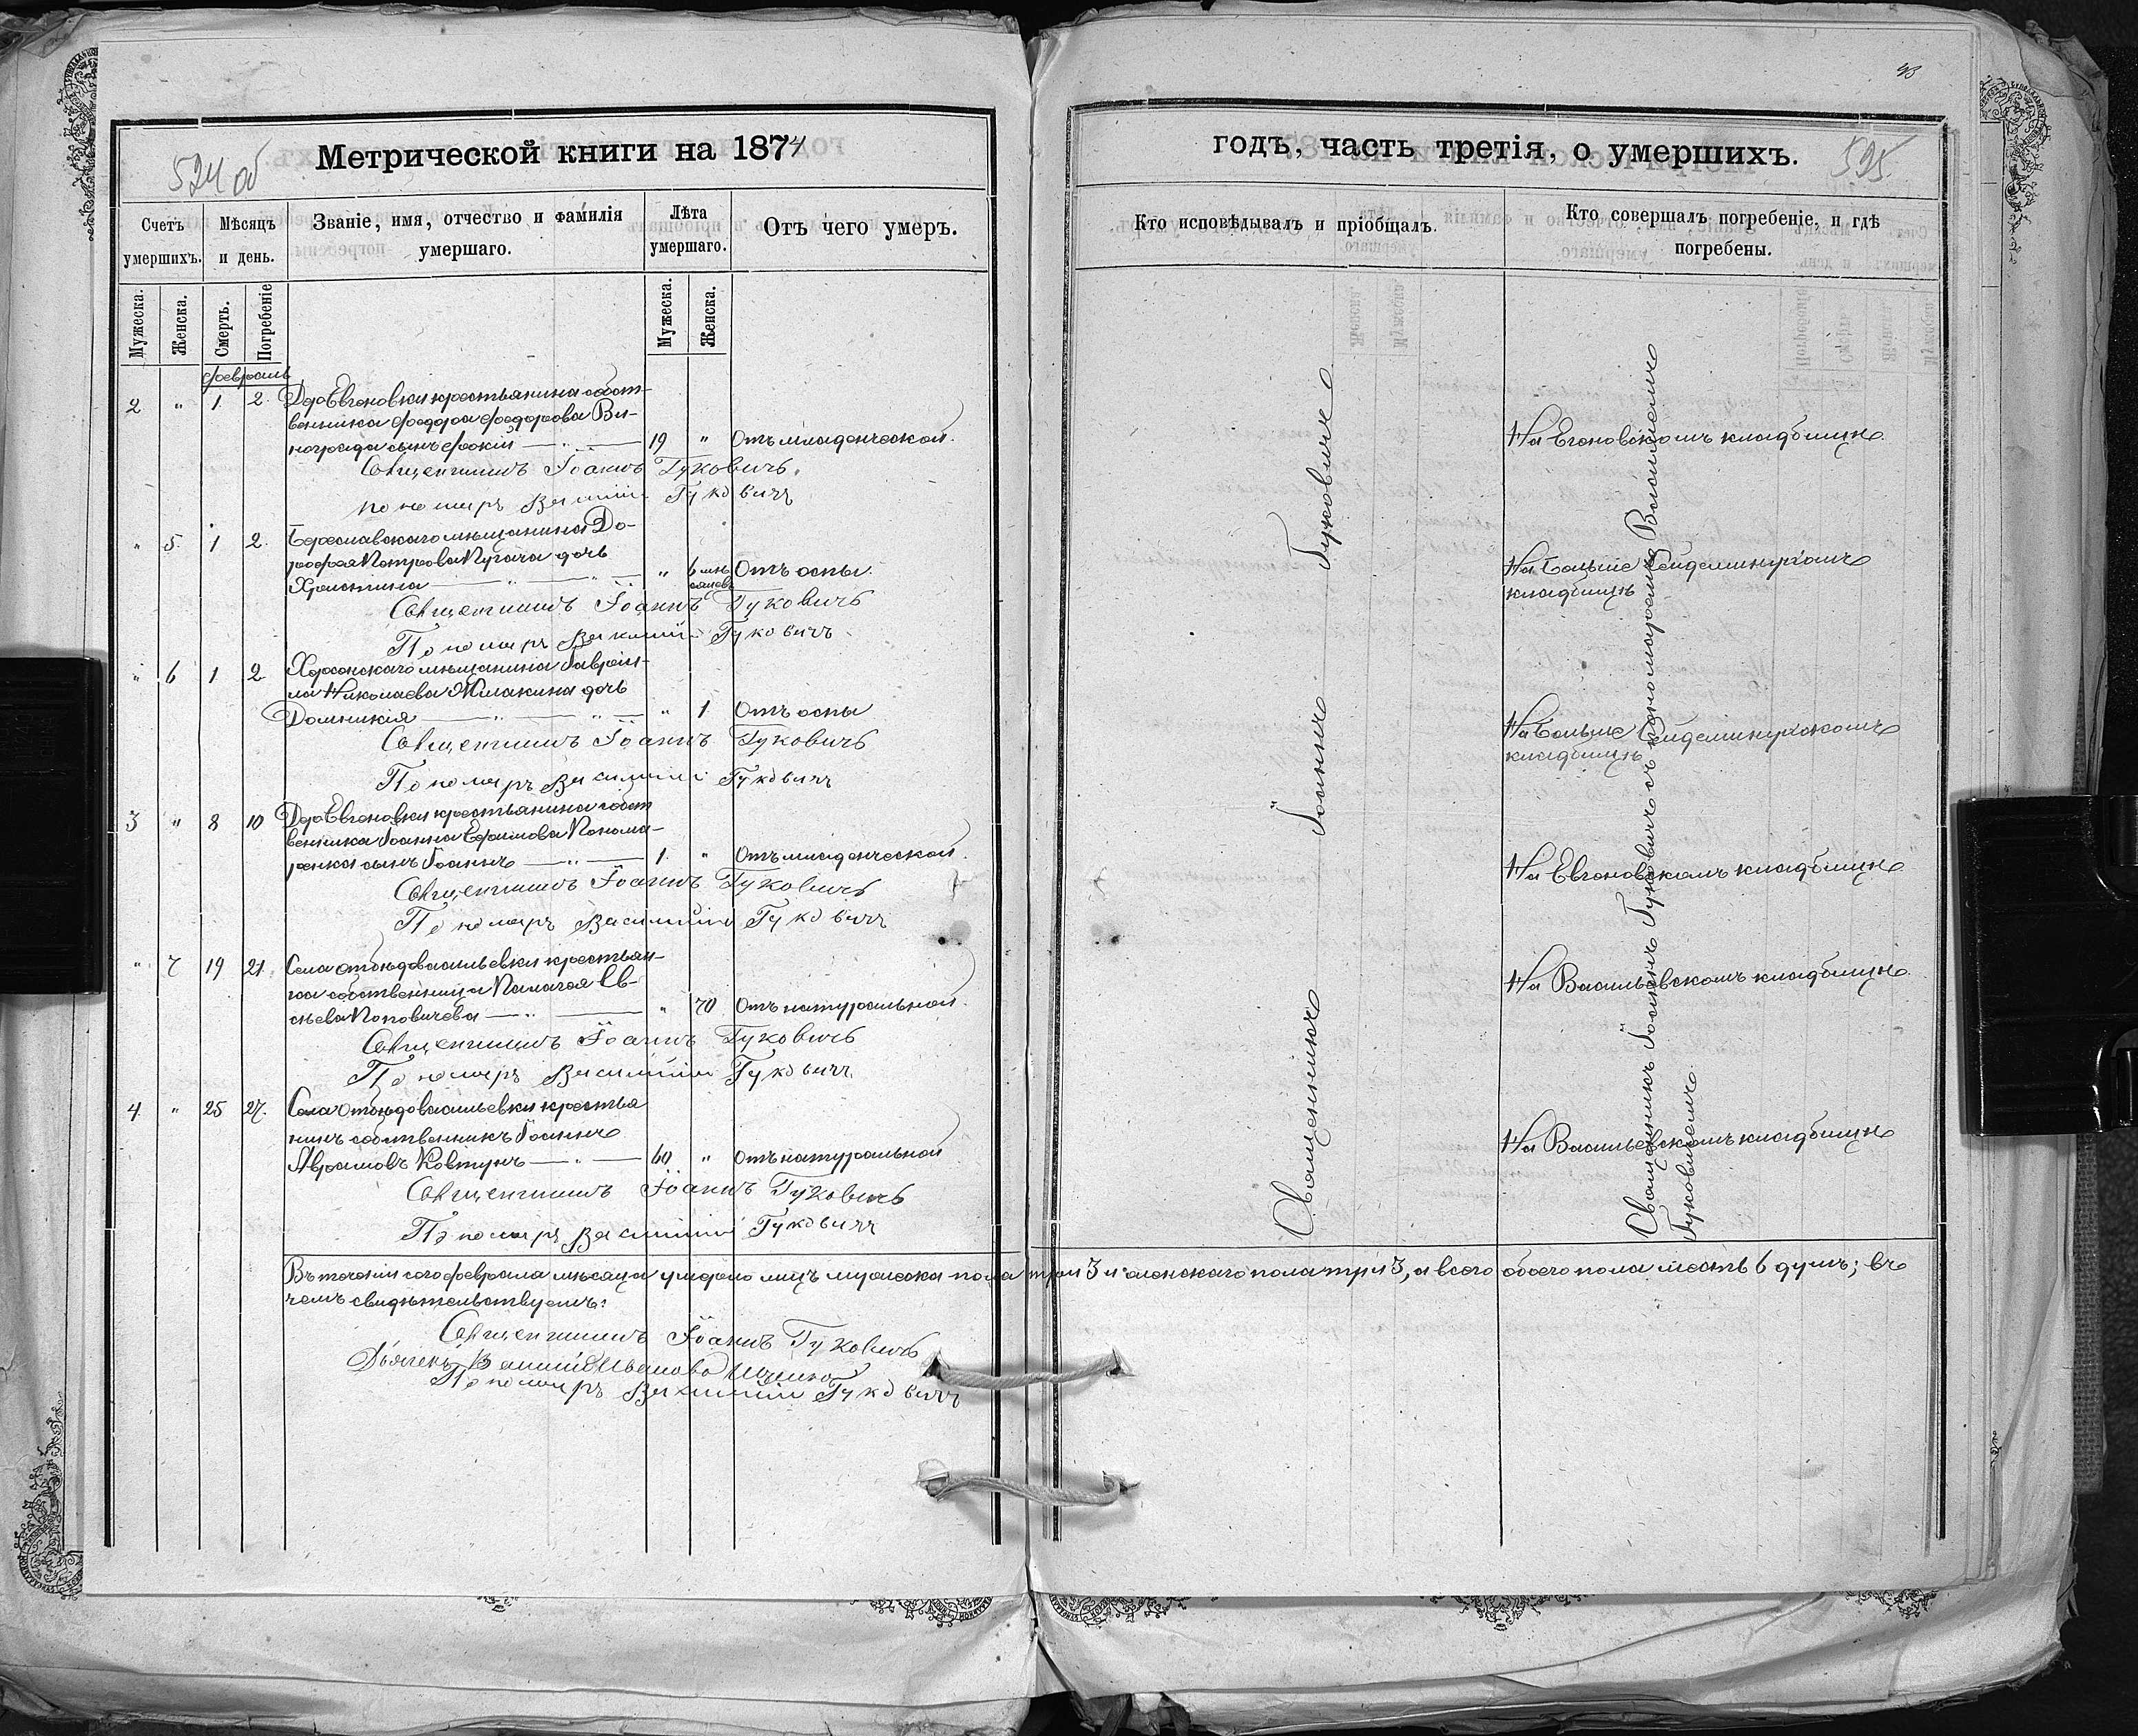 43
524 об
Метрической книги на 1874
годъ, часть третія, о умершихъ.
525
Счетъ умершихъ.
Мѣсяцъ и день.
Званіе, имя, отчество и фамилія умершаго.
Лѣта умершаго.
Отъ чего умеръ.
Кто исповѣдывалъ и пріобщалъ.
Кто совершалъ погребеніе, и гдѣ погребены.
Мужеска.
Женска.
Смерть.
Погребеніе
Мужеска.
Женска.
февраль
2 " 1 2 Дер Евгеновки крестьянина собст-
венника Федора Федорова Ви-
нограда сынъ Фокій 19 " Отъ младенческой.
На Евгеновскомъ кладбищѣ
Священникъ Іоаннъ Гуковичъ
пономарь Василій Гуковичъ
" 5 1 2 Береславскаго мѣщанина До-
рофея Петрова Пугача дочь
Христина " 6 мѣ-
сяцевъ Отъ оспы.
На Больше Сейдеминухскомъ
кладбищѣ
Священникъ Іоаннъ Гуковичъ
Пономарь Василій Гуковичъ
" 6 1 2 Херсонскаго мѣщанина Гаврiи-
ла Николаева дочь
Домникія " 1 Отъ оспы
На Больше Сейдеминухскомъ
кладбищѣ
Священникъ Іоаннъ Гуковичъ
Пономарь Василій Гуковичъ
3 " 8 10 Дер Евгеновки крестьянина собст
венника Іоанна Ефимова Понома-
ренка сынъ Іоаннъ 1 " Отъ младенческой.
На Евгеновскомъ кладбищѣ
Священникъ Іоаннъ Гуковичъ
Пономарь Василій Гуковичъ
" 7 19 21 Села Отбѣдовасильевки крестьян-
ка собственница Пелагея Ев-
сѣева Поповичева " 70 Отъ натуральной.
На Васильевскомъ кладбищѣ
Священникъ Іоаннъ Гуковичъ
Пономарь Василій Гуковичъ
4 " 25 27 Села Отбѣдовасильевки крестья
нинъ собственникъ Іоаннъ
Аврамовъ Ковтунъ 60 " Отъ натуральной
На Васильевскомъ кладбищѣ
Священникъ Іоаннъ Гуковичъ
Пономарь Василій Гуковичъ
Священникъ Іоаннъ Гуковичъ
Священникъ Іоаннъ Гуковичъ съ пономаремъ Василіемъ
Гуковичемъ.
Въ теченіи сего февраля мѣсяца умерло лицъ мужеска пола три 3 и женскаго пола три 3, а всего обоего пола шесть 6 душъ; въ
чемъ свидѣтельствуемъ:
Священникъ Іоаннъ Гуковичъ
Дьячекъ
Пономарь Василій Гуковичъ